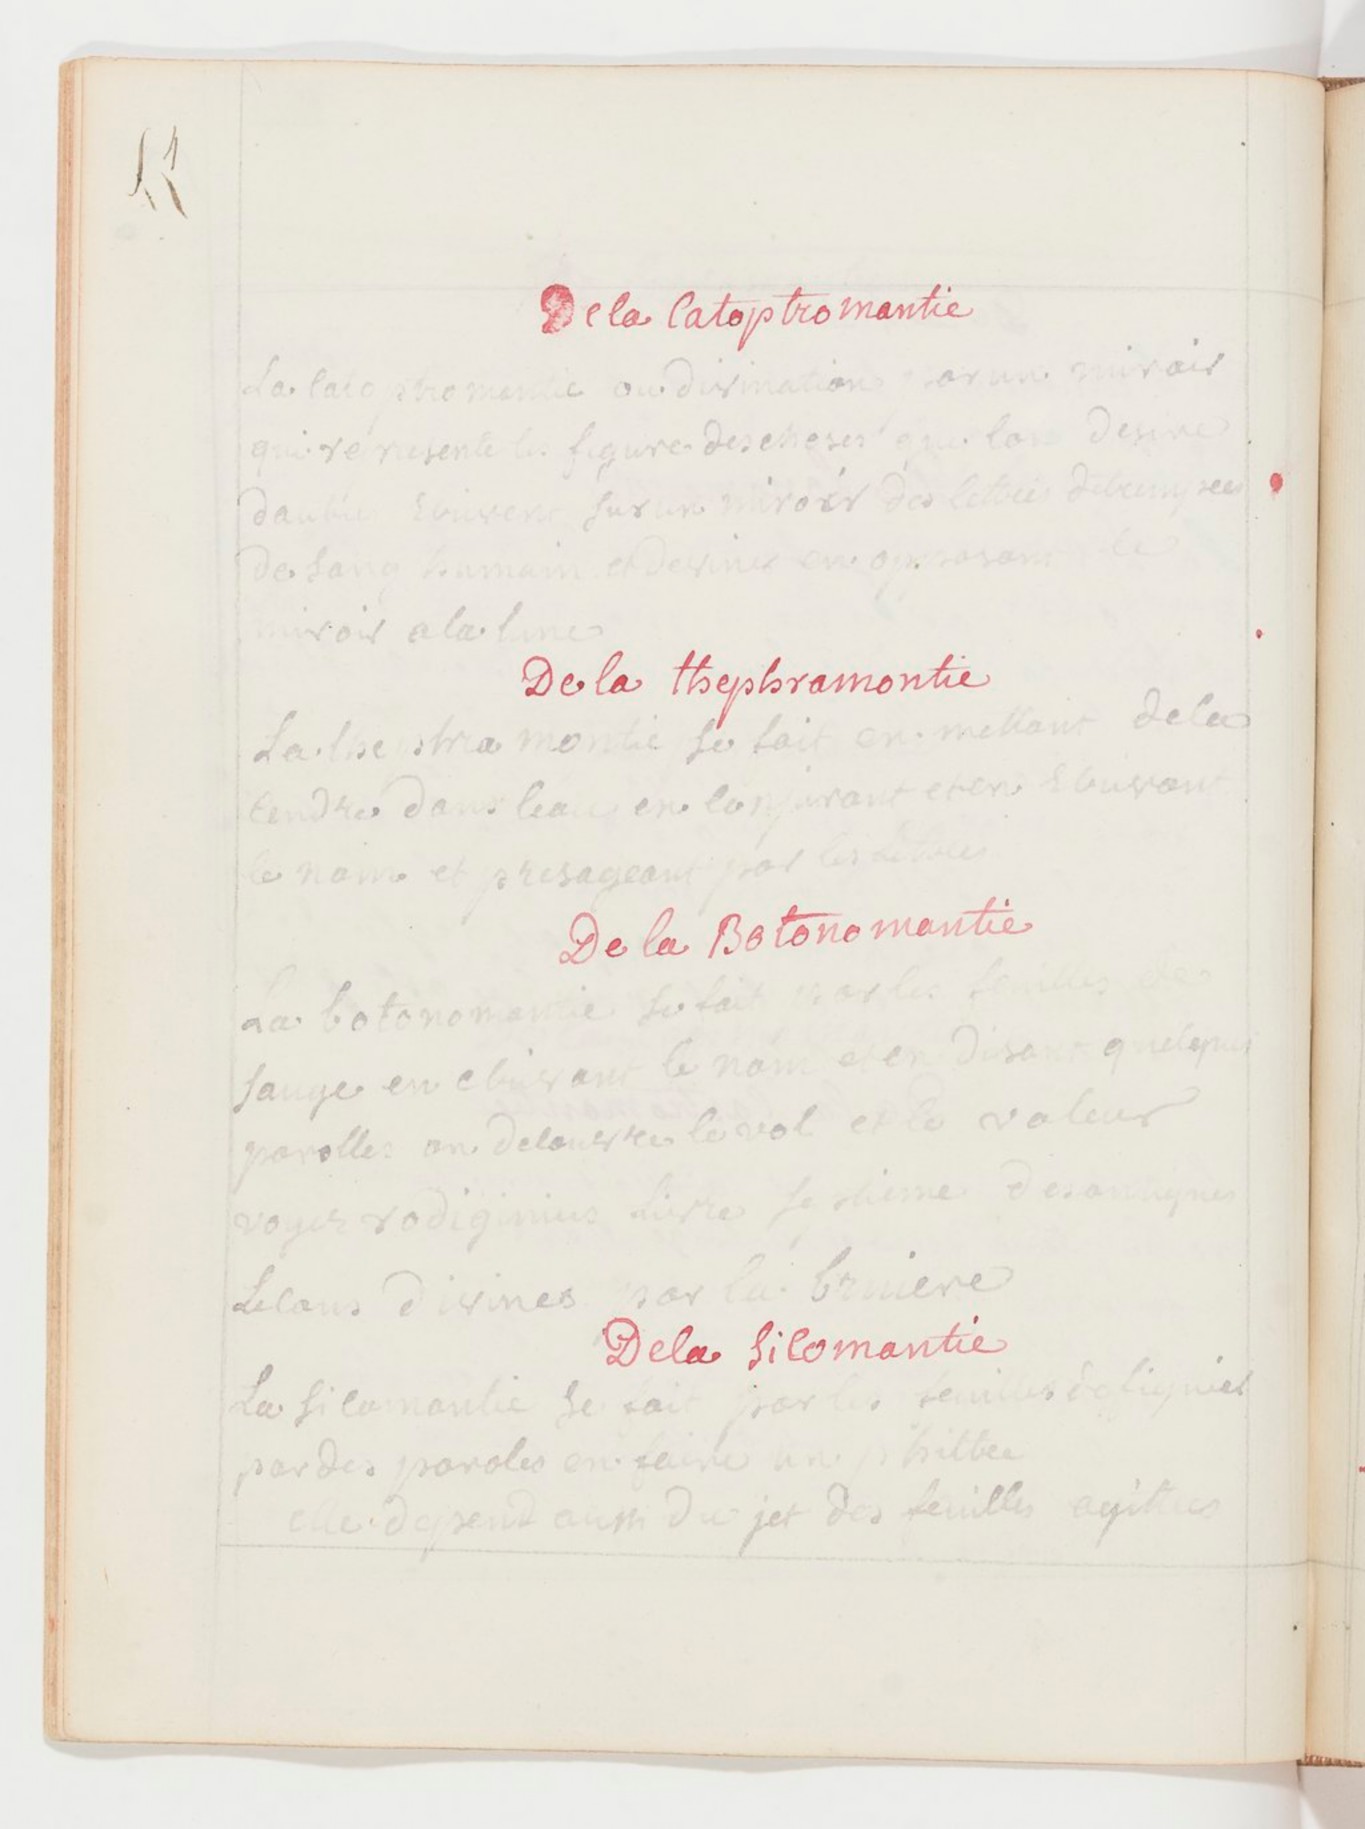 De la Catoptromantie
La Catoptromantie ou divination par un miroir
qui represente les figures des choses que lon desire
dautre Ecrivent sur un miroir des lettres detrempees
de sang humain et devine en oposant le
miroir a la lune
De la thephramontie
La thephramontie se fait en mettant de la
Cendre dans leau en Conjurant et en Ecrivant
le nom et presageant par les lettres
De la Botonomantie
La botonomantie se fait par les feuilles de
sauge en ecrivant le nom et en disant quelques
parolles on decouvre le vol et le voleur
voyez rodiginius livre des antiques
Lecons divines par la bruiere
De la Sicomantie
La Sicomantie se fait par les feuilles de figuier
par des paroles en faire un philtre
elle depend aussi du jet des feuilles agittees